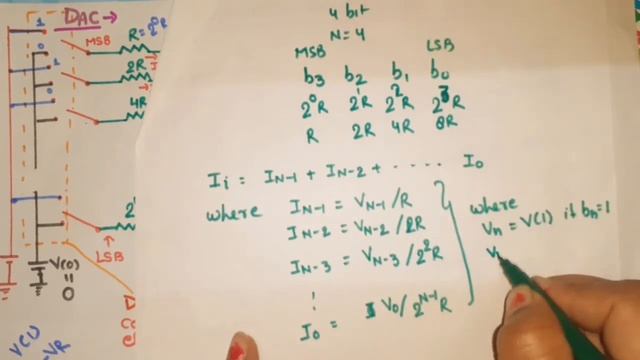 DAC →
1
MSB
R = 2⁰R
0
1
2R
0
4R
2
LSB
V(0)
=
0
V(1)
-VR
4 bit
N = 4
MSB LSB
b₃ b₂ b₁ b₀
2⁰R 2¹R 2²R 2³R
R 2R 4R 8R
Iᵢ = I_N-1 + I_N-2 + - - - - - I₀
where I_N-1 = V_N-1 / R
I_N-2 = V_N-2 / 2R
I_N-3 = V_N-3 / 2²R
⋮
I₀ = V₀ / 2^N-1 R
where
Vₙ = V(1) if bₙ = 1
Vₙ